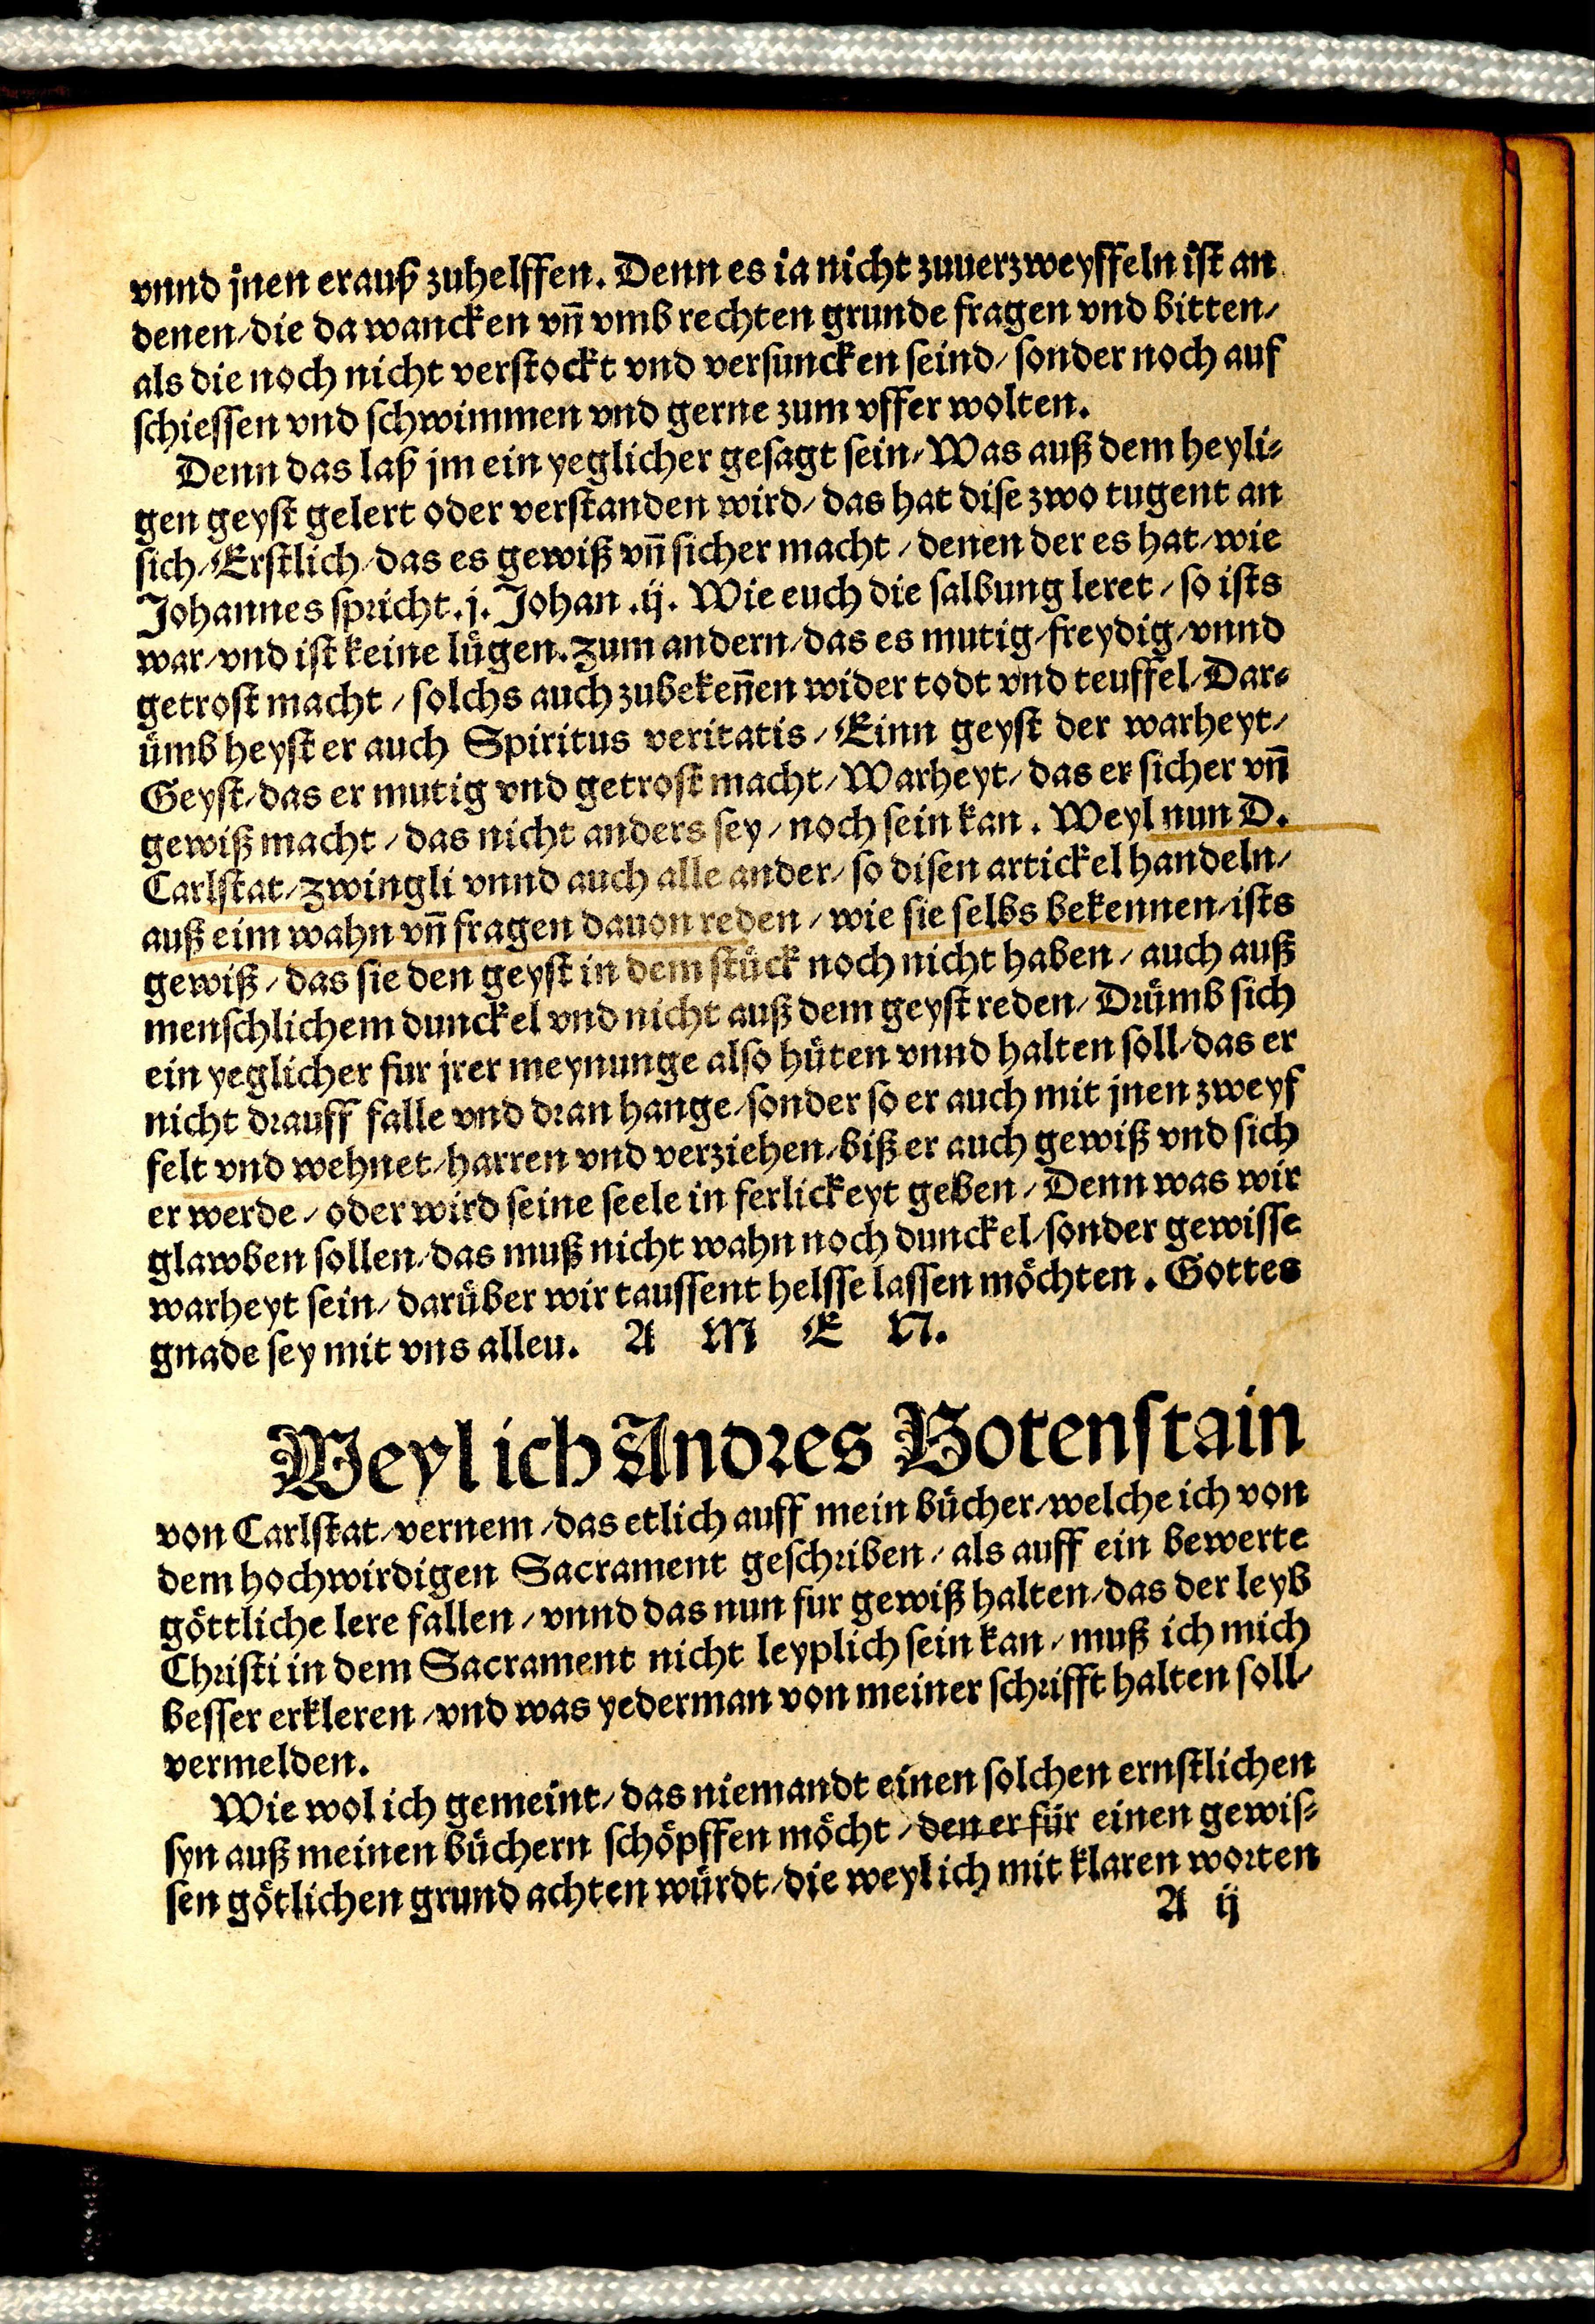 vnnd jnen erauß zuhelffen. Denn es ia nicht zuuerzweyffeln ist an
denen/ die da wancken vñ vmb rechten grunde fragen vnd bitten/
als die noch nicht verstockt vnd versuncken seind/ sonder noch auf
schiessen vnd schwimmen vnd gerne zum vffer wolten.
Denn das laß jm ein yeglicher gesagt sein/ Was auß dem heyli-
gen geyst gelert oder verstanden wird/ das hat dise zwo tugent an
sich/ Erstlich/ das es gewiß vñ sicher macht/ denen der es hat/ wie
Johannes spricht .j. Johan .ij. Wie euch die salbung leret/ so ists
war/ vnd ist keine lügen. Zum andern/ das es mutig/ freydig/ vnnd
getrost macht/ solchs auch zubekeñen wider todt vnd teuffel/ Dar-
ümb heyst er auch Spiritus veritatis/ Einn geyst der warheyt/
Geyst/ das er mutig vnd getrost macht/ Warheyt/ das er sicher vñ
gewiß macht/ das nicht anders sey/ noch sein kan. Weyl nun D.
Carlstat/ Zwingli vnnd auch alle ander/ so disen artickel handeln/
auß eim wahn vñ fragen dauon reden/ wie sie selbs bekennen/ ists
gewiß/ das sie den geyst in dem stück noch nicht haben/ auch auß
menschlichem dunckel vnd nicht auß dem geyst reden/ Drümb sich
ein yeglicher fur jrer meynunge also hüten vnnd halten soll/ das er
nicht drauff falle vnd dran hange/ sonder so er auch mit jnen zweyf
felt vnd wehnet/ harren vnd verziehen/ biß er auch gewiß vnd sich
er werde/ oder wird seine seele in ferlickeyt geben/ Denn was wir
glawben sollen/ das muß nicht wahn noch dunckel/ sonder gewisse
warheyt sein/ darüber wir taussent helsse lassen möchten. Gottes
gnade sey mit vns alleu. A M E N.
Weyl ich Andres Botenstain
von Carlstat/ vernem/ das etlich auff mein bücher/ welche ich von
dem hochwirdigen Sacrament geschriben/ als auff ein bewerte
göttliche lere fallen/ vnnd das nun fur gewiß halten/ das der leyb
Christi in dem Sacrament nicht leyplich sein kan/ muß ich mich
besser erkleren/ vnd was yederman von meiner schrifft halten soll/
vermelden.
Wie wol ich gemeint/ das niemandt einen solchen ernstlichen
syn auß meinen büchern schöpffen möcht/ den er für einen gewis-
sen götlichen grund achten würdt/ die weyl ich mit klaren worten
A ij